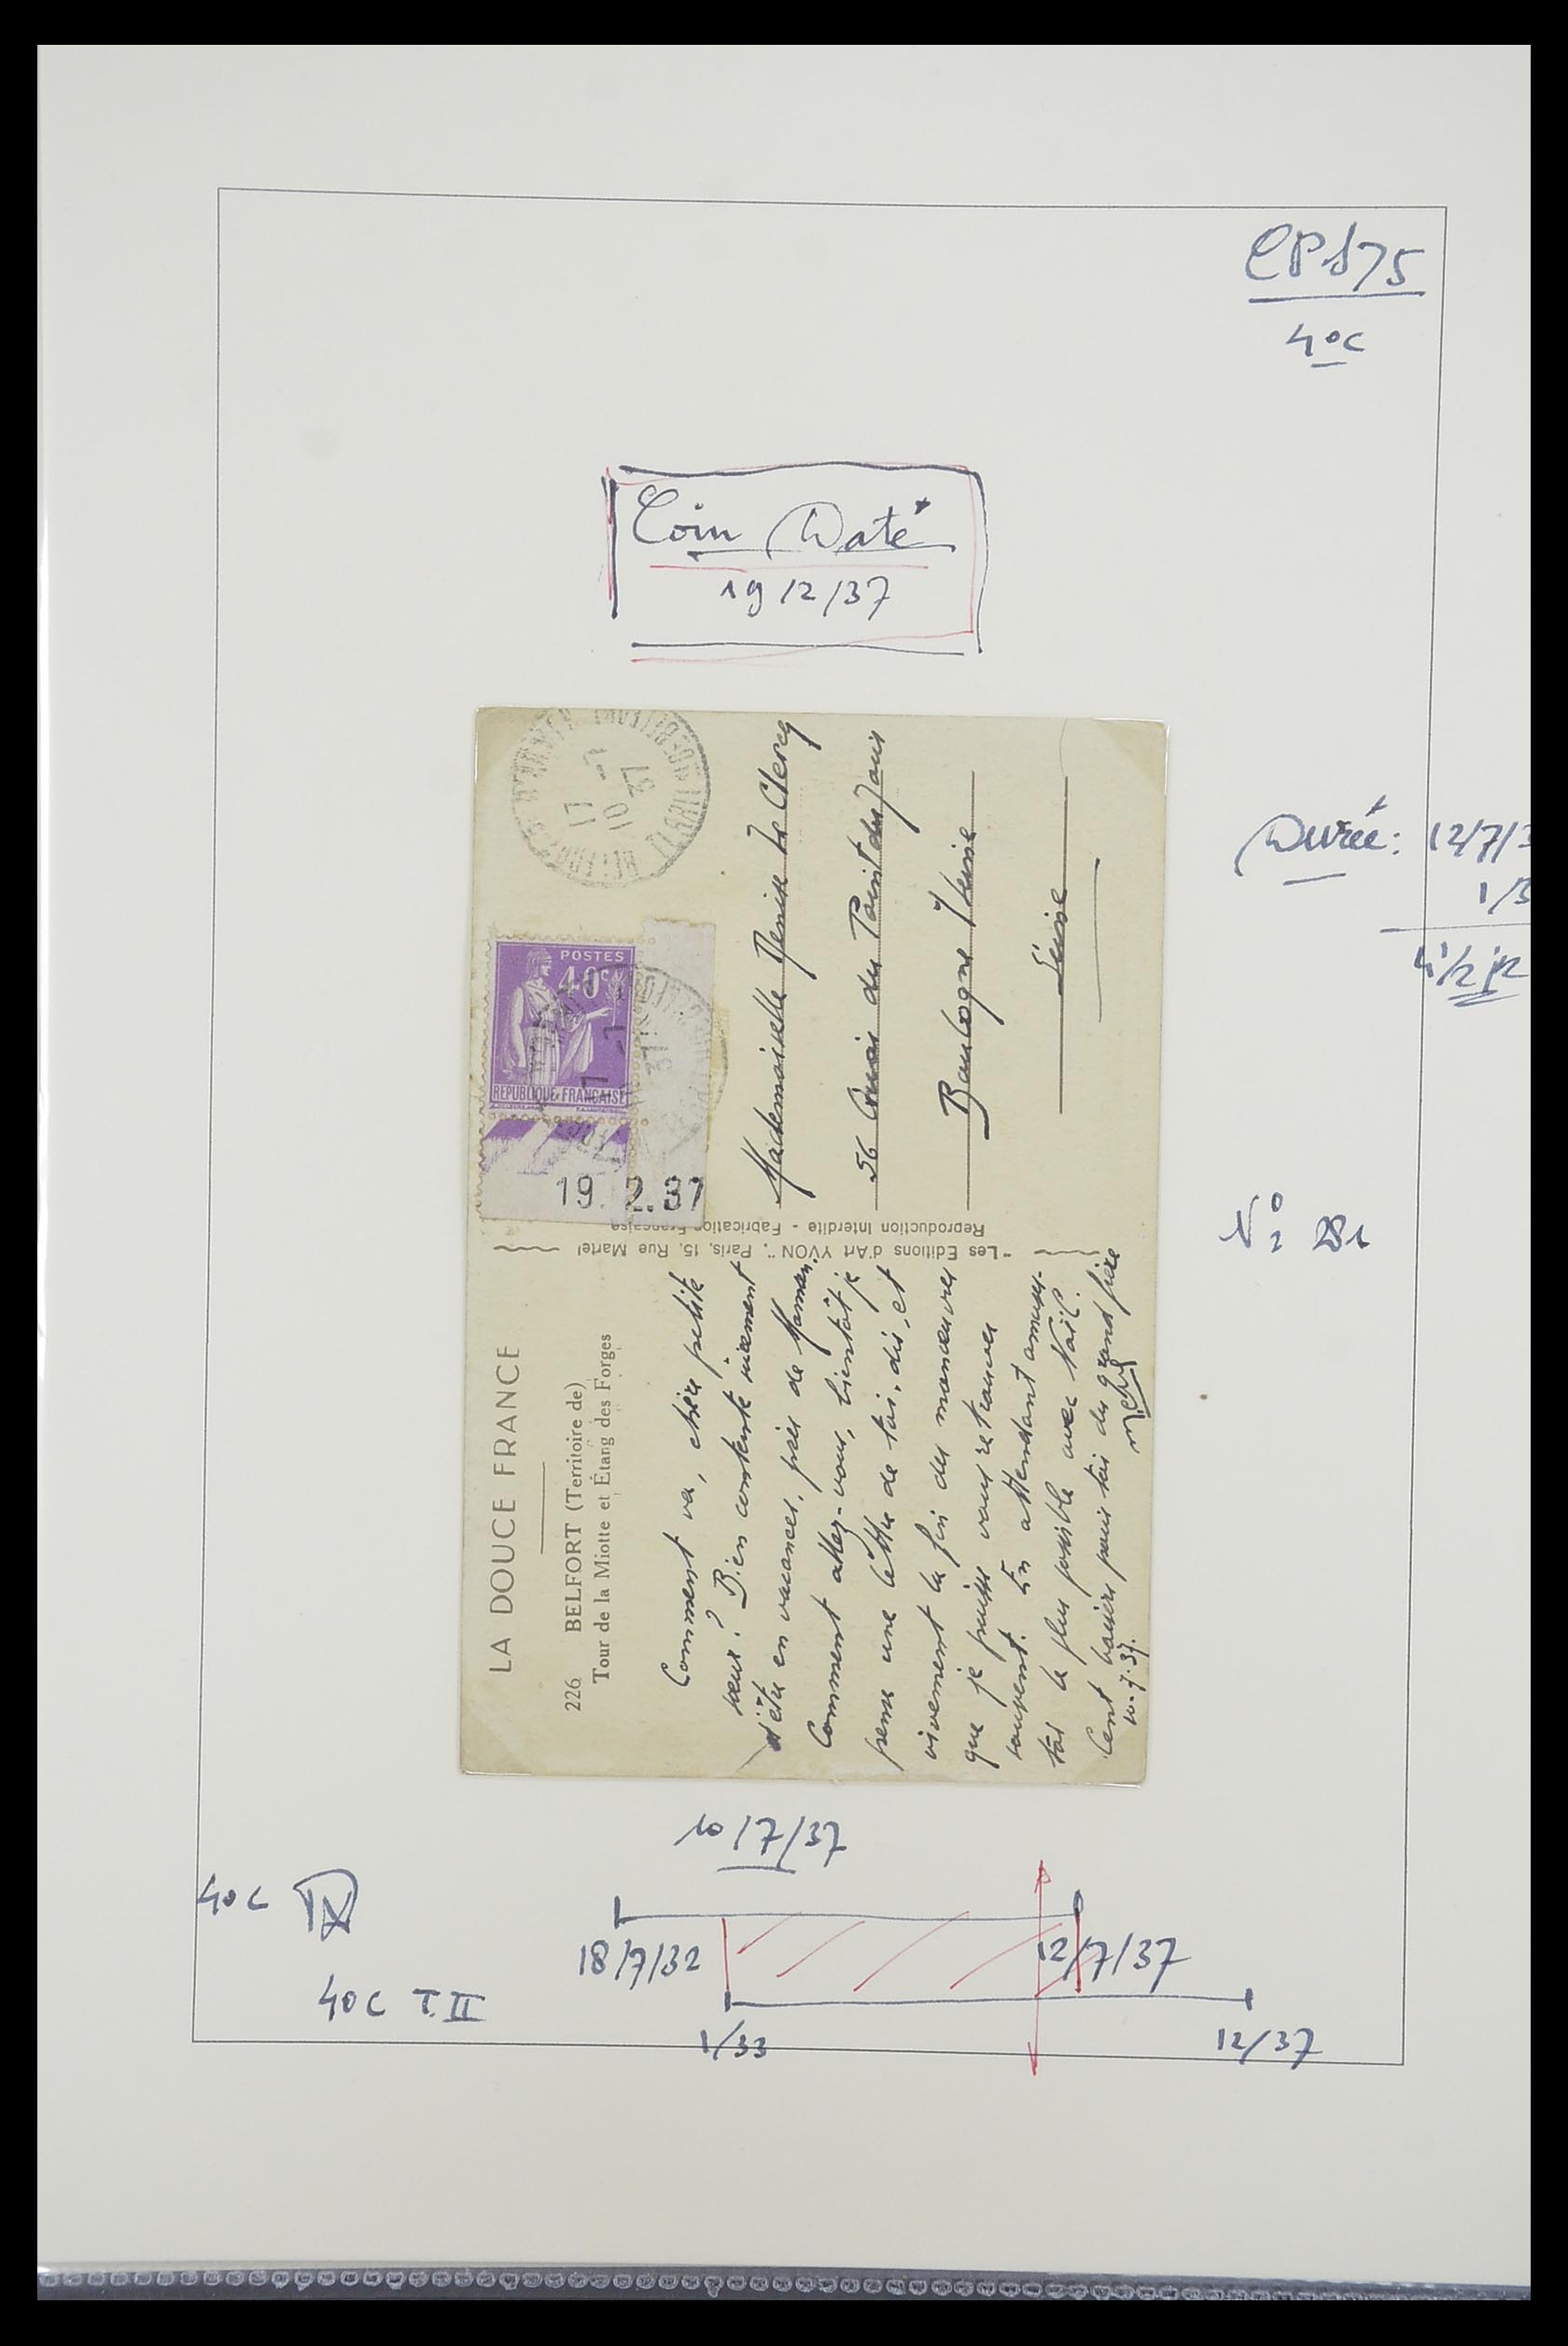 CP
40c
Coin Daté
19/2/37
Durée: 12/7/3
1/3
N° 281
11
10 -7
37
POSTES
40c
REPUBLIQUE FRANÇAISE
19. 2.37
Mademoiselle Denise Le Clercq
56 Quai du Point du Jour
Boulogne s/Seine
Seine
"Les Editions d'Art YVON", Paris, 15, Rue Martel
Reproduction Interdite - Fabrication Française
LA DOUCE FRANCE
226 BELFORT (Territoire de)
Tour de la Miotte et Étang des Forges
Comment va, chère petite
sœur? Bien contente sûrement
d'être en vacances, près de Maman.
Comment allez-vous, bientôt je
pense une lettre de toi, dis, et
vivement la fin des manœuvres
que je puisse vous retrouver
souvent. En attendant amuse-
toi le plus possible avec
Cent baisers pour toi du grand frère
10-7-37.
10/7/37
40c
18/7/32
12/7/37
40c T.II
1/33
12/37